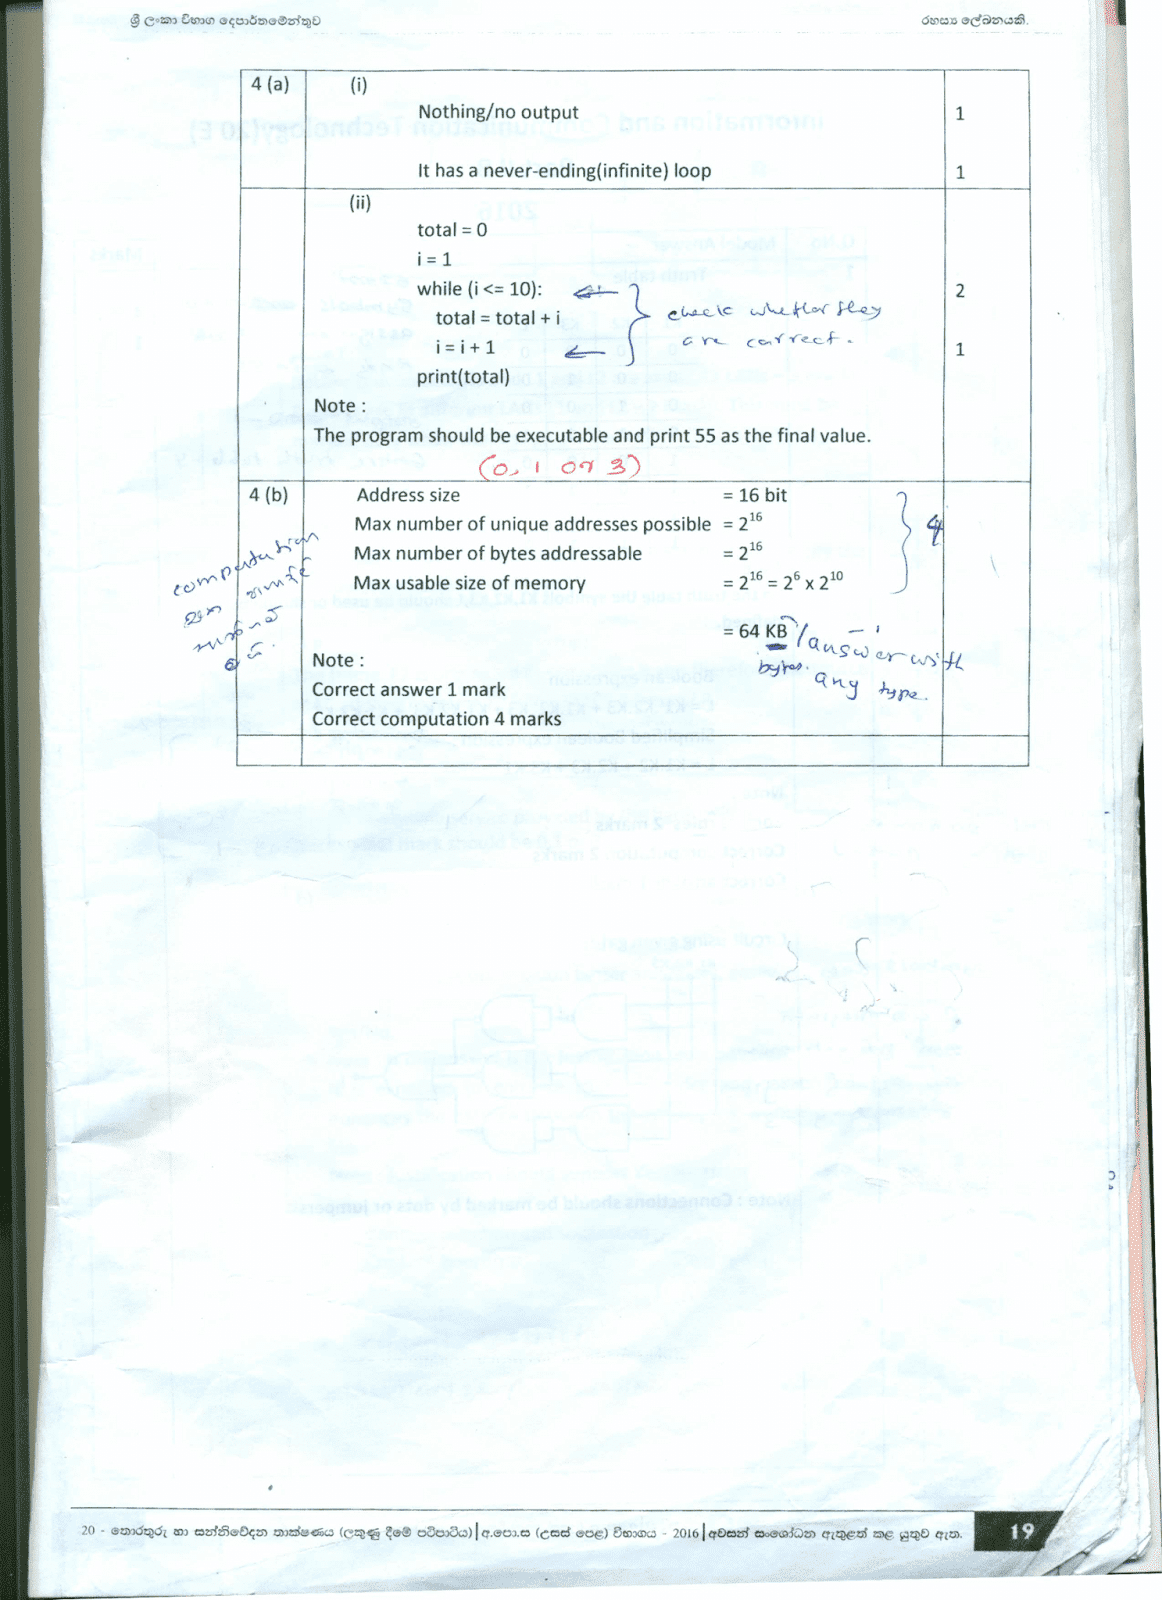 ශ්‍රී ලංකා විභාග දෙපාර්තමේන්තුව
රහස්‍ය ලේඛනයකි.
4 (a) (i)
Nothing/no output 1
It has a never-ending(infinite) loop 1
(ii)
total = 0
i = 1
while (i <= 10): 2
total = total + i check whether they
are correct.
i = i + 1 1
print(total)
Note :
The program should be executable and print 55 as the final value.
(0, 1 or 3)
4 (b) Address size = 16 bit
Max number of unique addresses possible = 2¹⁶ 4
Max number of bytes addressable = 2¹⁶
Max usable size of memory = 2¹⁶ = 2⁶ x 2¹⁰
computation
= 64 KB / answer with
bytes. any type.
Note :
Correct answer 1 mark
Correct computation 4 marks
20 - තොරතුරු හා සන්නිවේදන තාක්ෂණය (ලකුණු දීමේ පටිපාටිය) | අ.පො.ස (උසස් පෙළ) විභාගය - 2016 | අවසන් සංශෝධන ඇතුළත් කළ යුතුව ඇත. 19